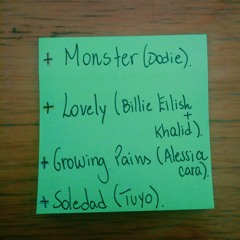 + Monster (Dodie).
+ Lovely (Billie Eilish
+
Khalid).
+ Growing Pains (Alessia
cara).
+ Soledad (Tuyo).